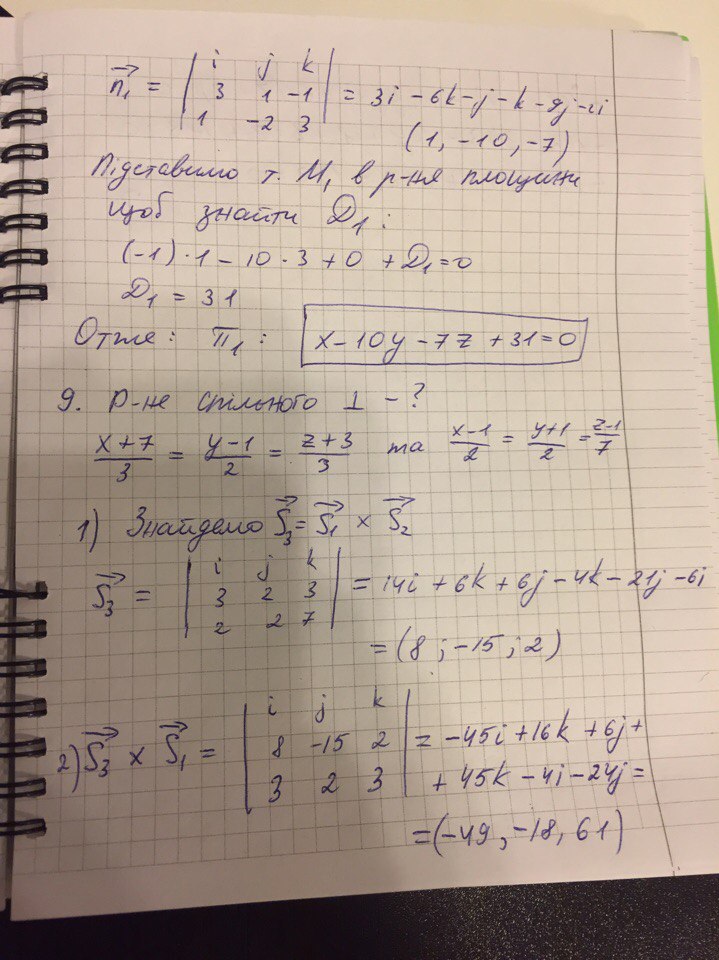 n₁ = | i j k | 3 1 -1 | 1 -2 3 | = 3i - 6k - j - k - 9j - 2i
(1, -10, -7)
Підставимо т. M₁ в р-ня площини
щоб знайти D₁:
(-1)·1 - 10·3 + 0 + D₁ = 0
D₁ = 31
Отже: π₁: x - 10y - 7z + 31 = 0
9. Р-не спільного ⊥ - ?
(x+7)/3 = (y-1)/2 = (z+3)/3 та (x-1)/2 = (y+1)/2 = (z-1)/7
1) Знайдемо S₃ = S₁ × S₂
S₃ = | i j k | 3 2 3 | 2 2 7 | = 14i + 6k + 6j - 4k - 21j - 6i
= (8; -15; 2)
2) S₃ × S₁ = | i j k | 8 -15 2 | 3 2 3 | = -45i + 16k + 6j +
+ 45k - 4i - 24j =
= (-49, -18, 61)